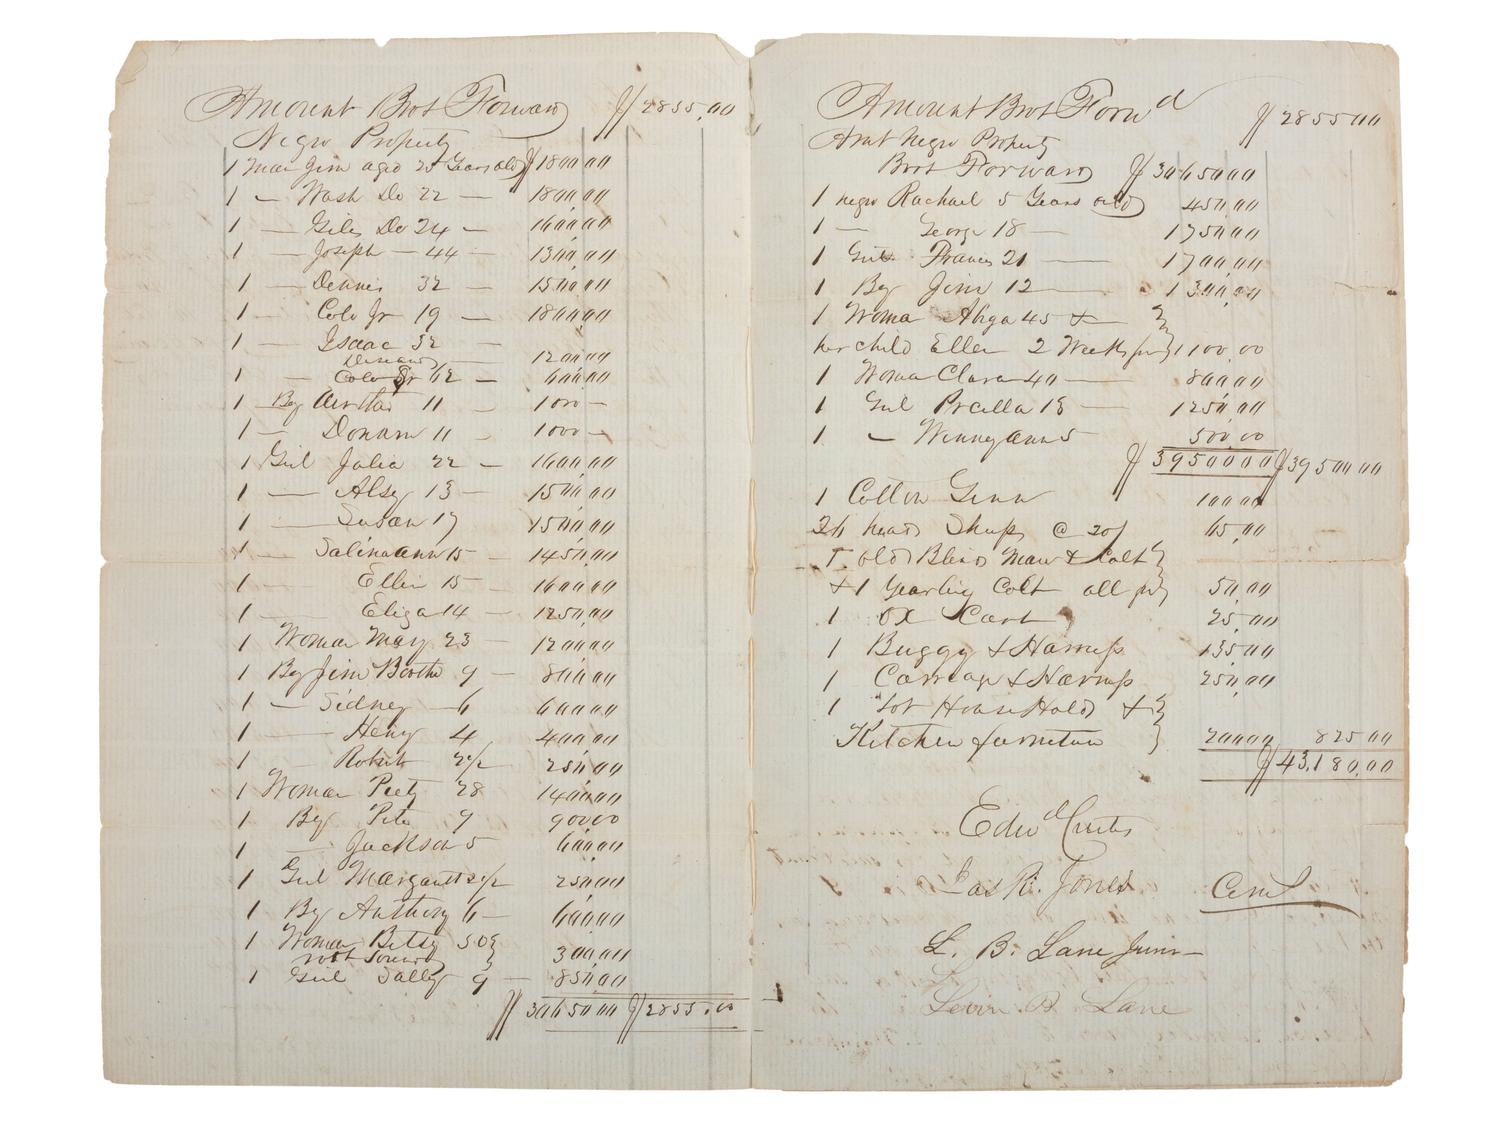 Amount Brot Forward $2855.00
Negro Property
1 Man Jim aged 25 Years old $1800,00
1 — Wash Do 22 — 1800,00
1 — Giles Do 24 — 1600,00
1 — Joseph — 44 — 1300,00
1 — Dennis 32 — 1500,00
1 — Colo Jr 19 — 1800,00
1 — Isaac 32 —
Diseased 1200,00
1 — Colo Sr 62 — 600,00
1 Boy 11 — 1000 —
1 — 11 — 1000 —
1 Girl Julia 22 — 1600,00
1 — Alsey 13 — 1500,00
1 — Susan 17 1500,00
1 — Salina ann 15 — 1450,00
1 — Ellen 15 — 1600,00
1 — Eliza 14 — 1250,00
1 Woman Mary 23 — 1200,00
1 Boy Jim Boothe 9 — 800,00
1 — Sidney — 6 600,00
1 — Heny 4 400,00
1 — Robert 2½ 250,00
1 Woman 28 1400,00
1 Boy Pete 9 900,00
1 — Jackson 5 600,00
1 Girl Margarett 2½ 250,00
1 Boy Anthony 6 — 600,00
1 Woman Betsy 50 }
not Sound } 300,00
1 Girl Sally 9 — 850,00
$30650,00 $2855.00
Amount Brot Forwd $2855,00
Amt Negro Property
Brot Forward $30650,00
1 negro Rachael 5 Years old 450,00
1 — George 18 — 1750,00
1 Girl Frances 21 — 1700,00
1 Boy Jim 12 — 1300,00
1 Woman 45 & — }
her child Ellen 2 Weeks } 1100,00
1 Woman Clara 40 — 800,00
1 Girl Prcilla 18 — 1250,00
1 — Winney ann 5 500,00
$39500,00 $39500,00
1 Cotton Genn 100,00
26 head Sheep @ 20/ 65,00
1 old Blind Mare & Colt }
& 1 Yearling Colt all } 50,00
1 Ox Cart 25,00
1 Buggy & Harness 135,00
1 Carriage & Harness 250,00
1 Lot House Hold & }
Kitchen furniture } 200,00 825,00
$43,180,00
Edwd Curtis
Jas R. Jones Coml
L. B. Lane Junr
Levin B. Lane